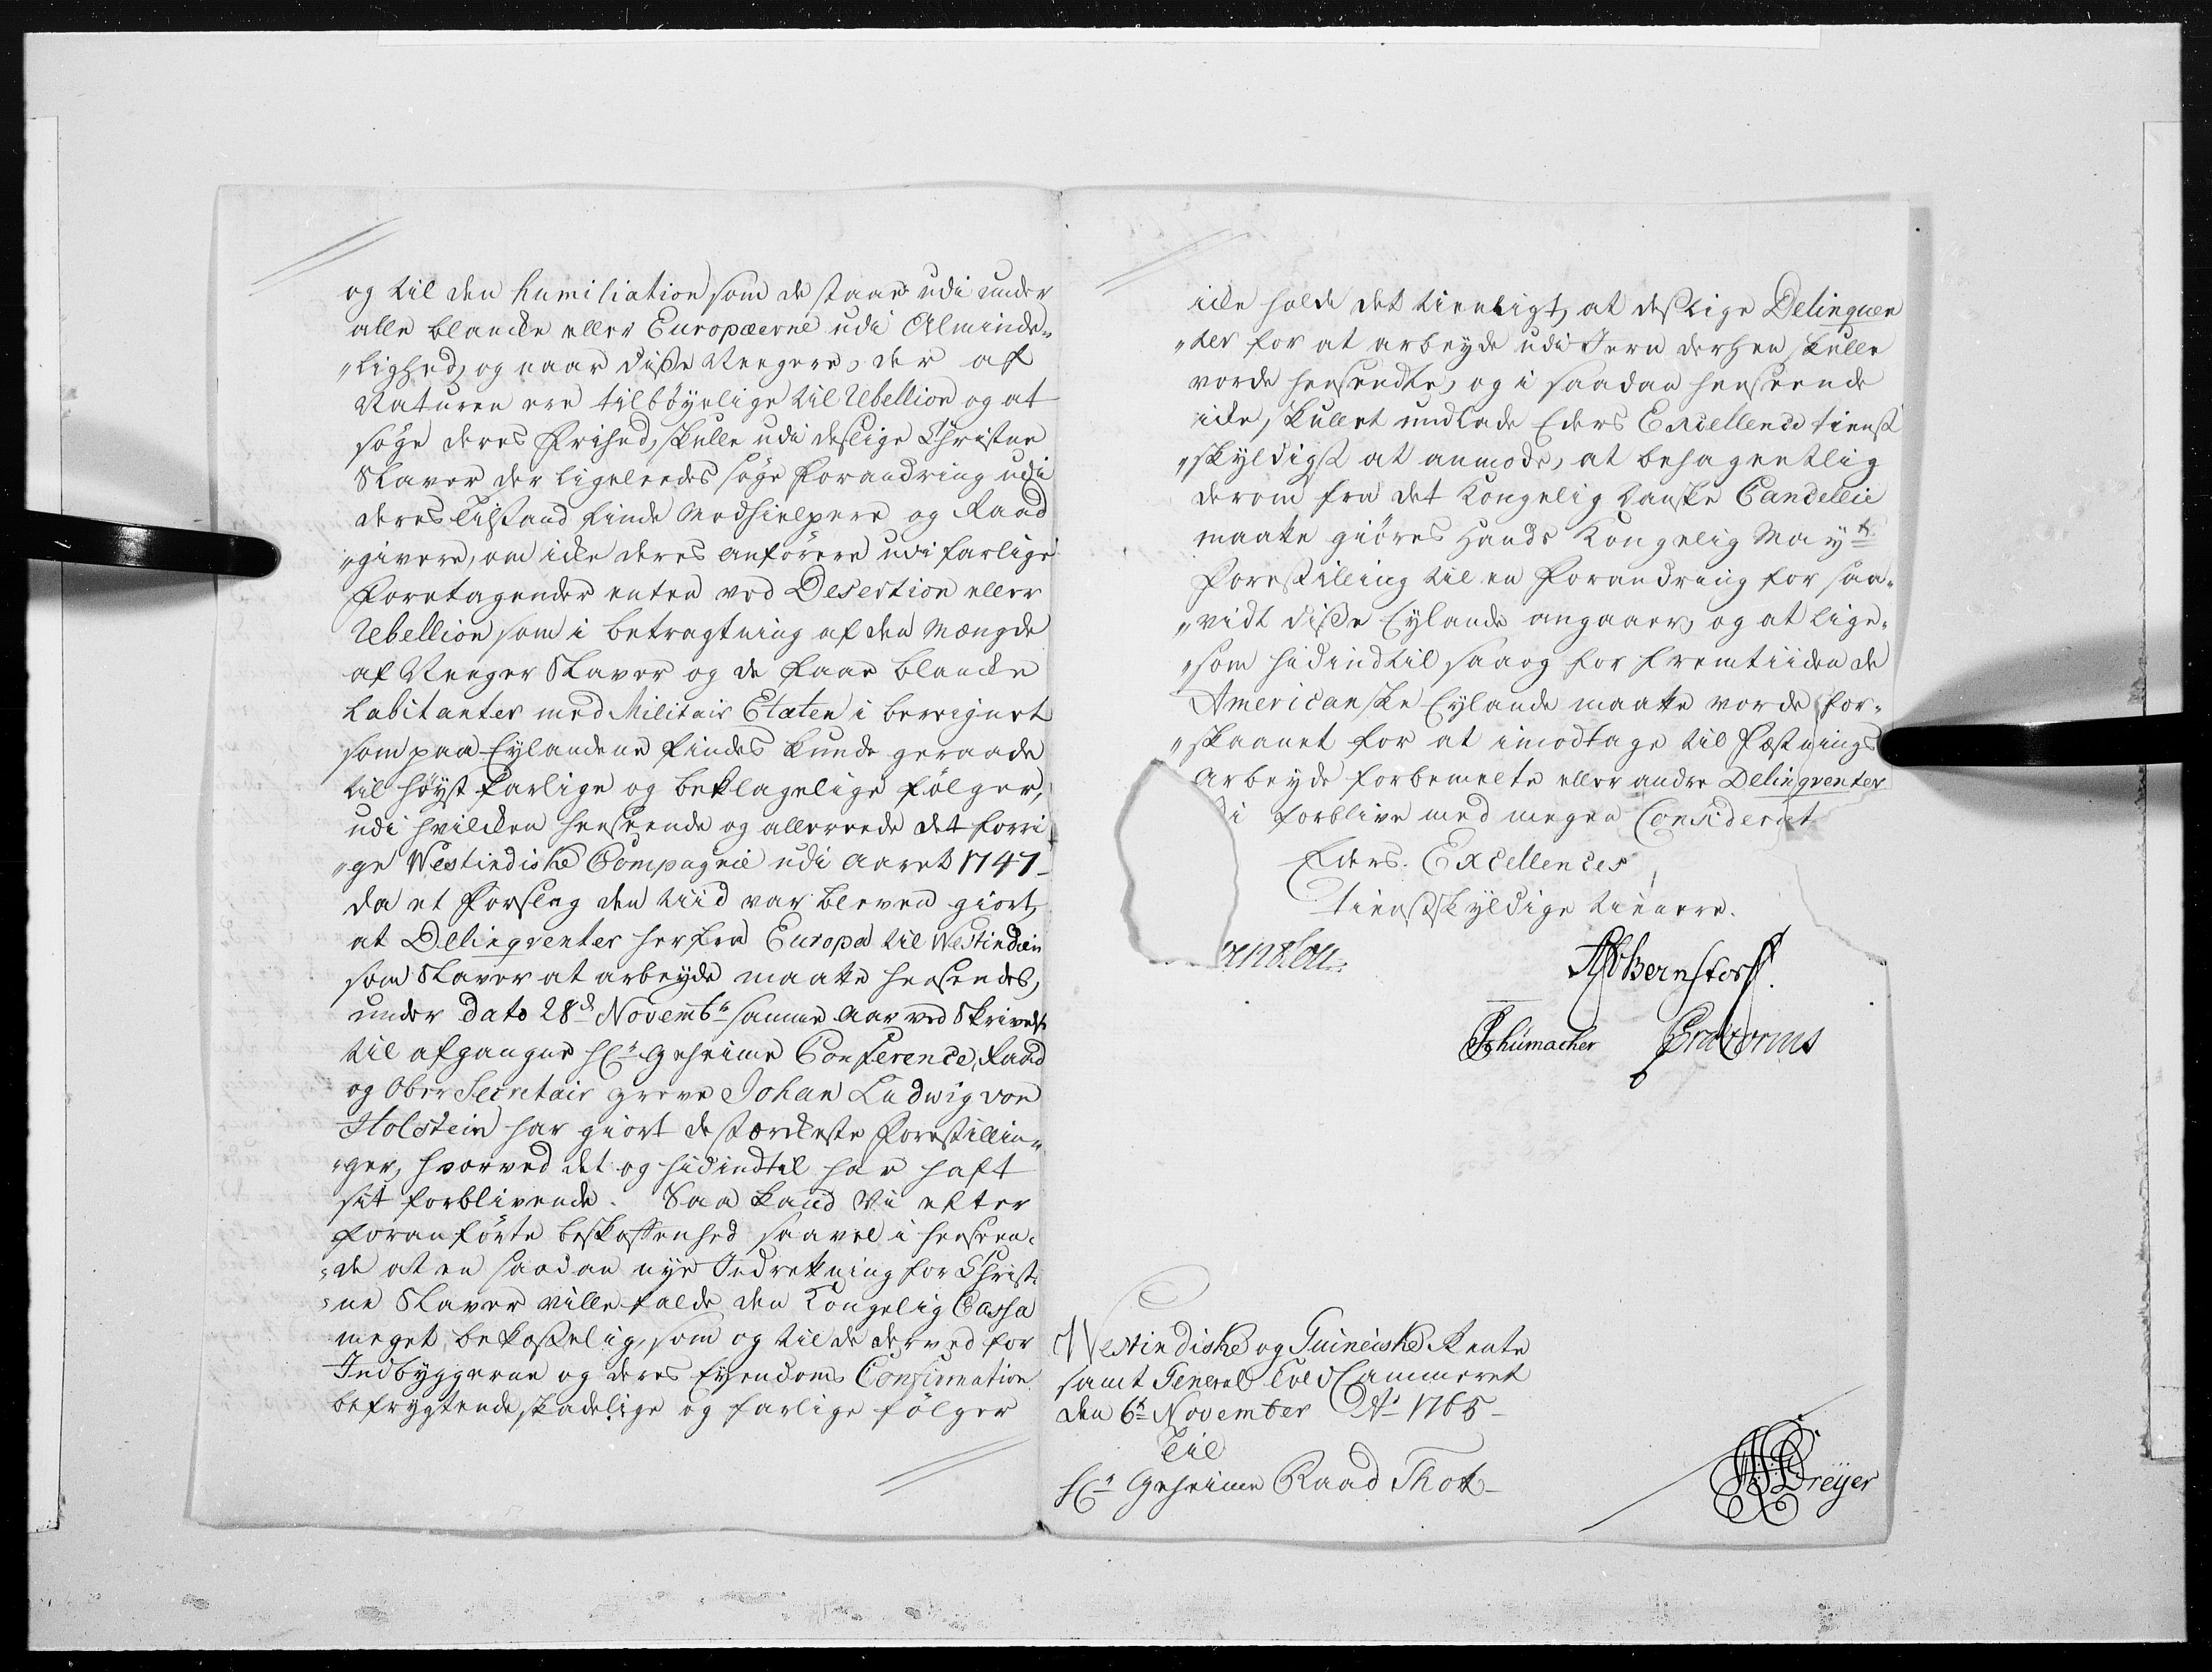 og til den humiliation som de staar udi under
alle blancke eller Europæerne udi Alminde„
„lighed, og naar disse Neegere, der af
Naturen ere tilböyelige til Rebellion og at
søge deres Frihed, skulle udi deslige Christne
Slaver der ligeleedes søge Forandring udi
deres Tilstand finde Medhielpere og Raad
„givere, om icke deres anförere udi farlige
Foretagender enten ved Desertion eller
Rebellion som i betragtning af den Mængde
af Neeger Slaver og de faae blancke
habitanter med Militair Etaten i bereignet
som paa Eylandene findes kunde geraade
til høyst farlige og beklagelige fölger,
udi hvilcken henseende og allereede det forri
„ge Westindiske Compagnie udi Aaret 1747
da et Forslag den tiid var bleven giort,
at Delinqventer herfra Europa til Westindien
som Slaver at arbeyde maatte hensendes,
under dato 28d Novembr samme Aar ved Skrivelse
til afgangne Hr Geheime Conference Raad
og Ober Secretair Greve Johan Ludwig von
Holstein har giort de stærckeste Forestillin„
„ger, hvorved det og hidindtil har haft
sit forblivende. Saa kand Vi efter
foranførte beskaffenhed saavel i henseen„
„de at en saadan nye Indretning for Christ„
„ne Slaver ville falde den Kongelig Cassa
meget bekostelig, som og til de derved for
Indbyggerne og deres Eyendoms Conservation
befrygtende skadelige og farlige fölger
icke holde det tienligt, at deslige Delinquen
„ter for at arbeyde udi Jern derhen skulle
vorde hensendte, og i saadan henseende
icke skullet undlade Eders Excellence tienst
„skyldigst at anmode, at behagentlig
derom fra det Kongelig danske Cancellie
maatte giöres Hands Kongelig Mayt
Forestilling til en Forandring for saa„
„vidt disse Eylande angaaer, og at lige„
„som hidindtil saa og for fremtiiden de
Americanske Eylande maatte vorde for„
„skaanet for at imodtage til Fæstnings
Arbeyde forbemeelte eller andre Delinqventer
i forblive med megen Considerat
Eders Excellences
tienstskyldige tienere.
AP Bernstorff.
Schumacher
Westindiske og Guineiske Rente
samt General Told Cammeret
den 6t November Ao 1765
Til
Hr Geheime Raad Thott
Dreyer